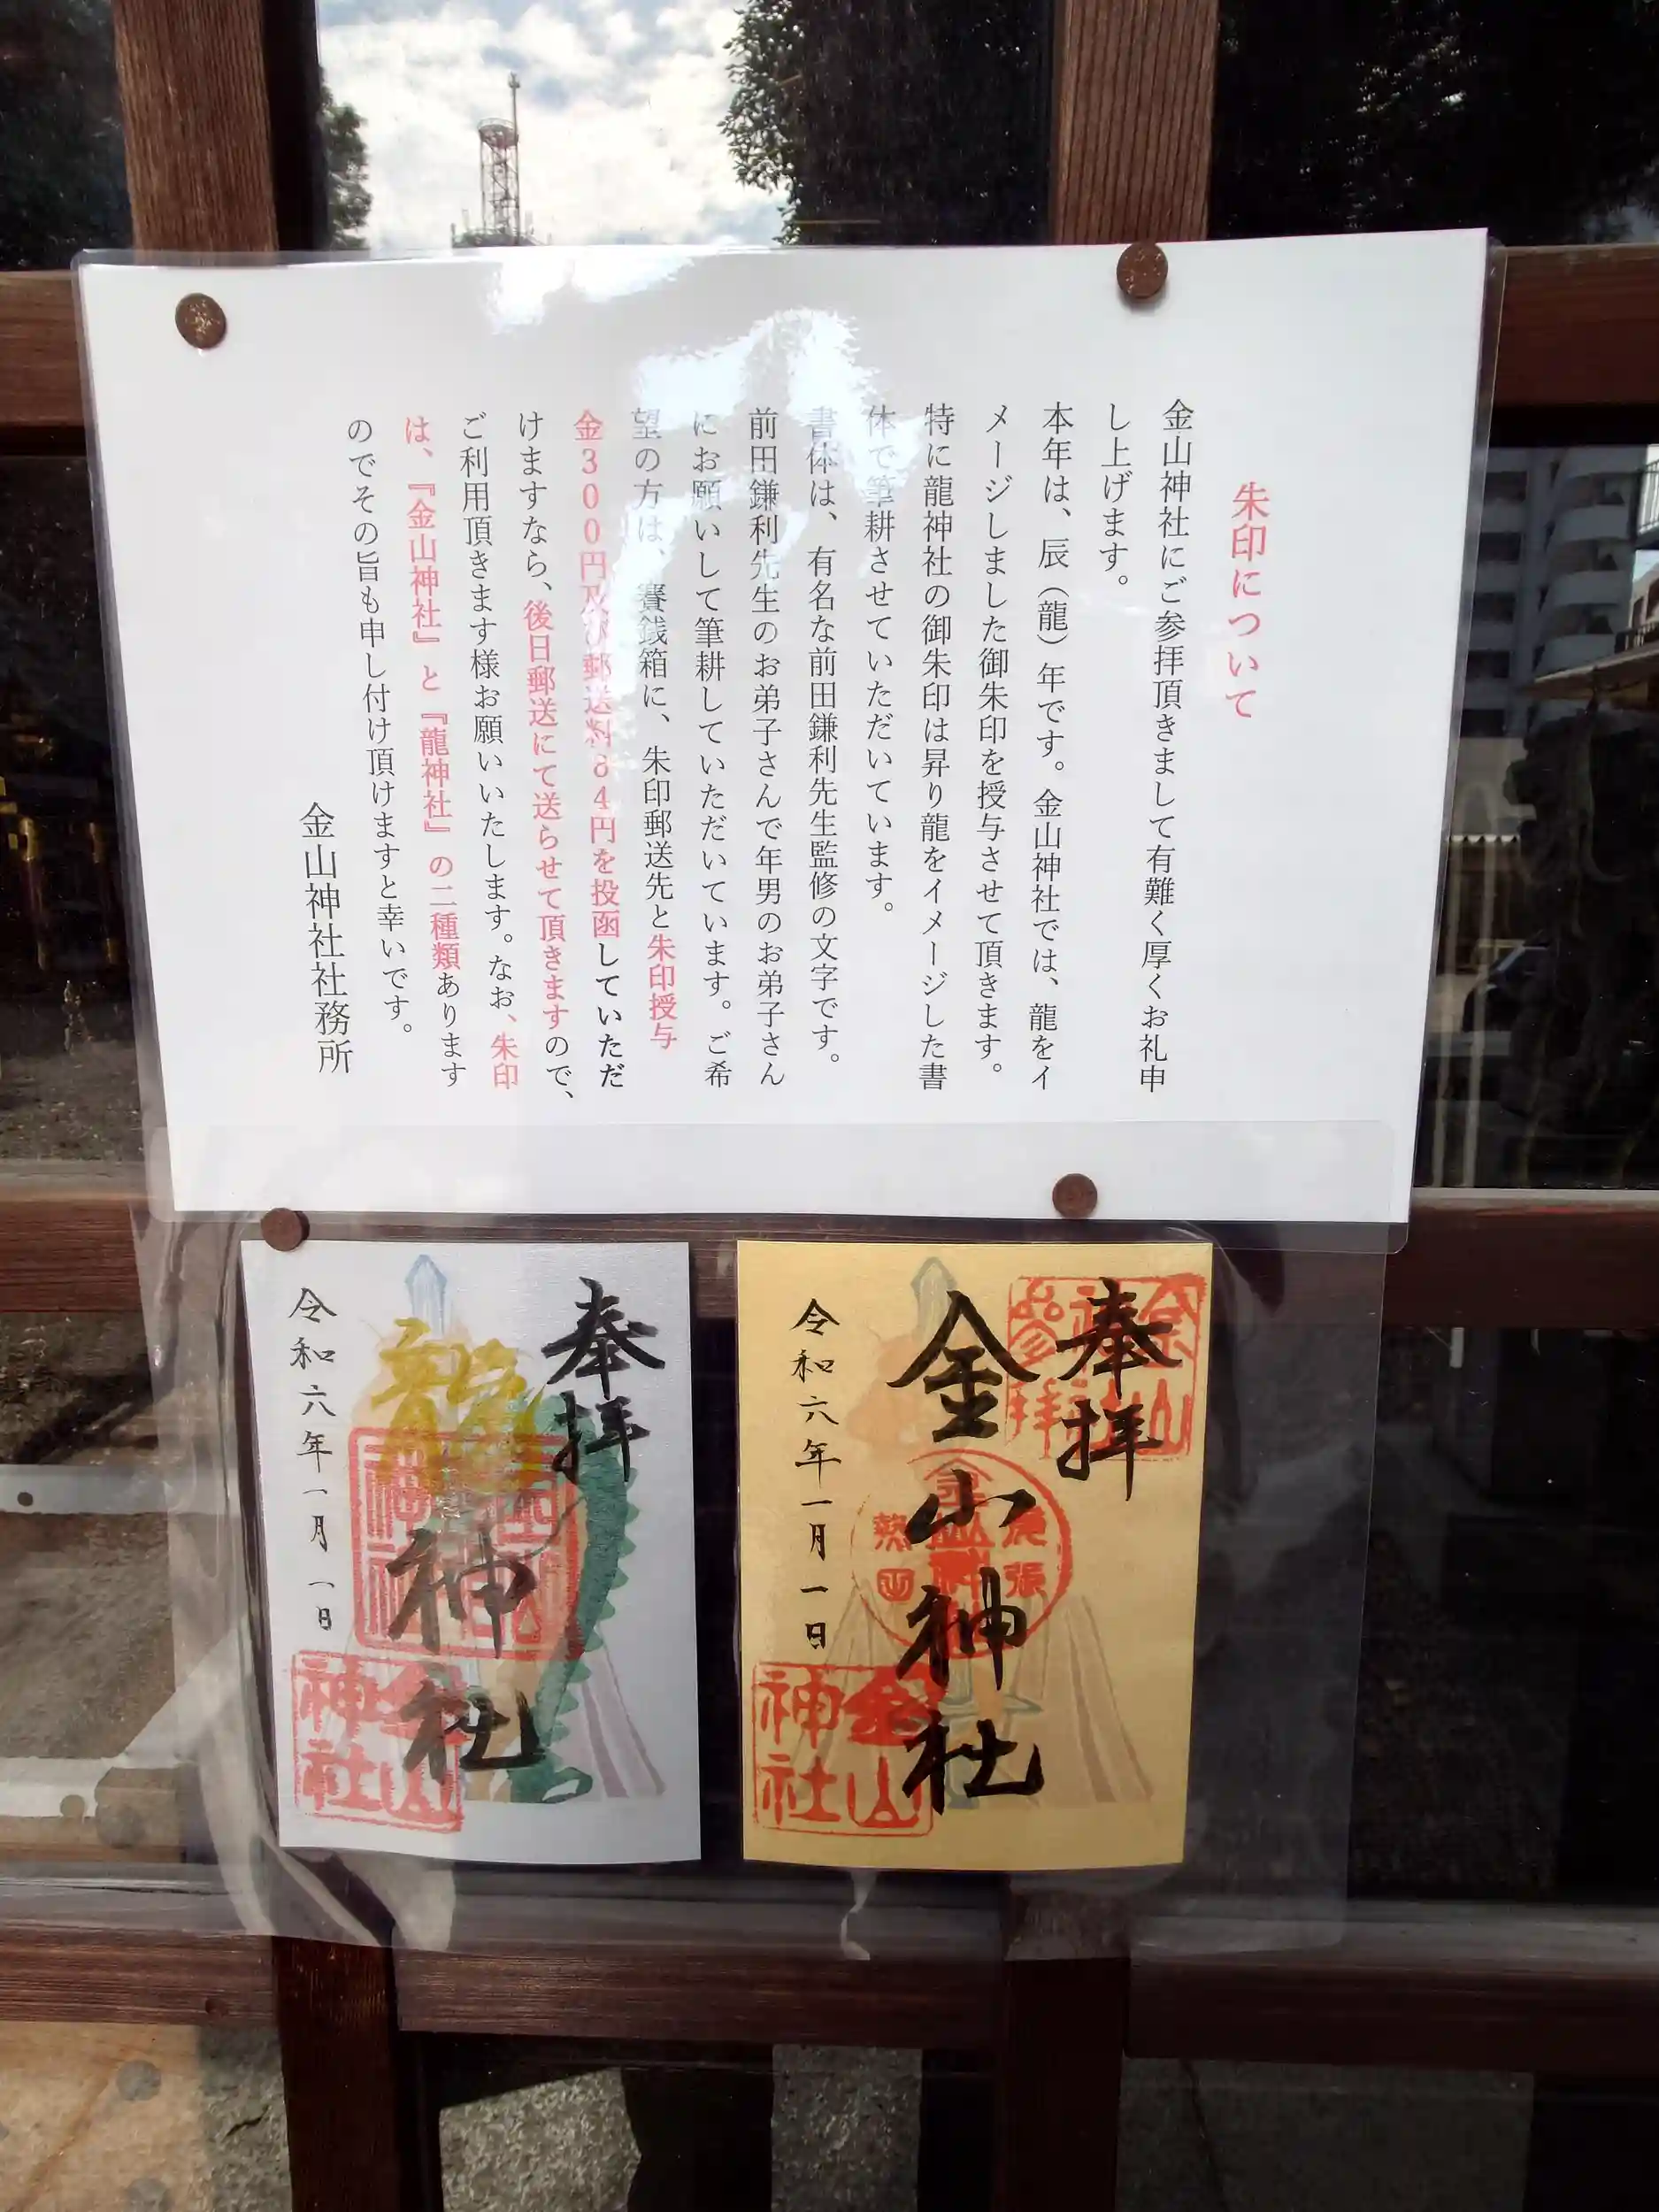 朱印について
金山神社にご参拝頂きまして有難く厚くお礼申
し上げます。
本年は、辰（龍）年です。金山神社では、龍をイ
メージしました御朱印を授与させて頂きます。
特に龍神社の御朱印は昇り龍をイメージした書
体で筆耕させていただいています。
書体は、有名な前田鎌利先生監修の文字です。
前田鎌利先生のお弟子さんで年男のお弟子さん
にお願いして筆耕していただいています。ご希
望の方は、賽銭箱に、朱印郵送先と朱印授与
金300円及び郵送料84円を投函していただ
けますなら、後日郵送にて送らせて頂きますので、
ご利用頂きます様お願いいたします。なお、朱印
は、『金山神社』と『龍神社』の二種類あります
のでその旨も申し付け頂けますと幸いです。
金山神社社務所
奉拝
金山神社
令和六年一月一日
金山
神社
参拝
尾張
金山神社
熱田
金山
神社
奉拝
龍神社
令和六年一月一日
金山
神社
金山
神社